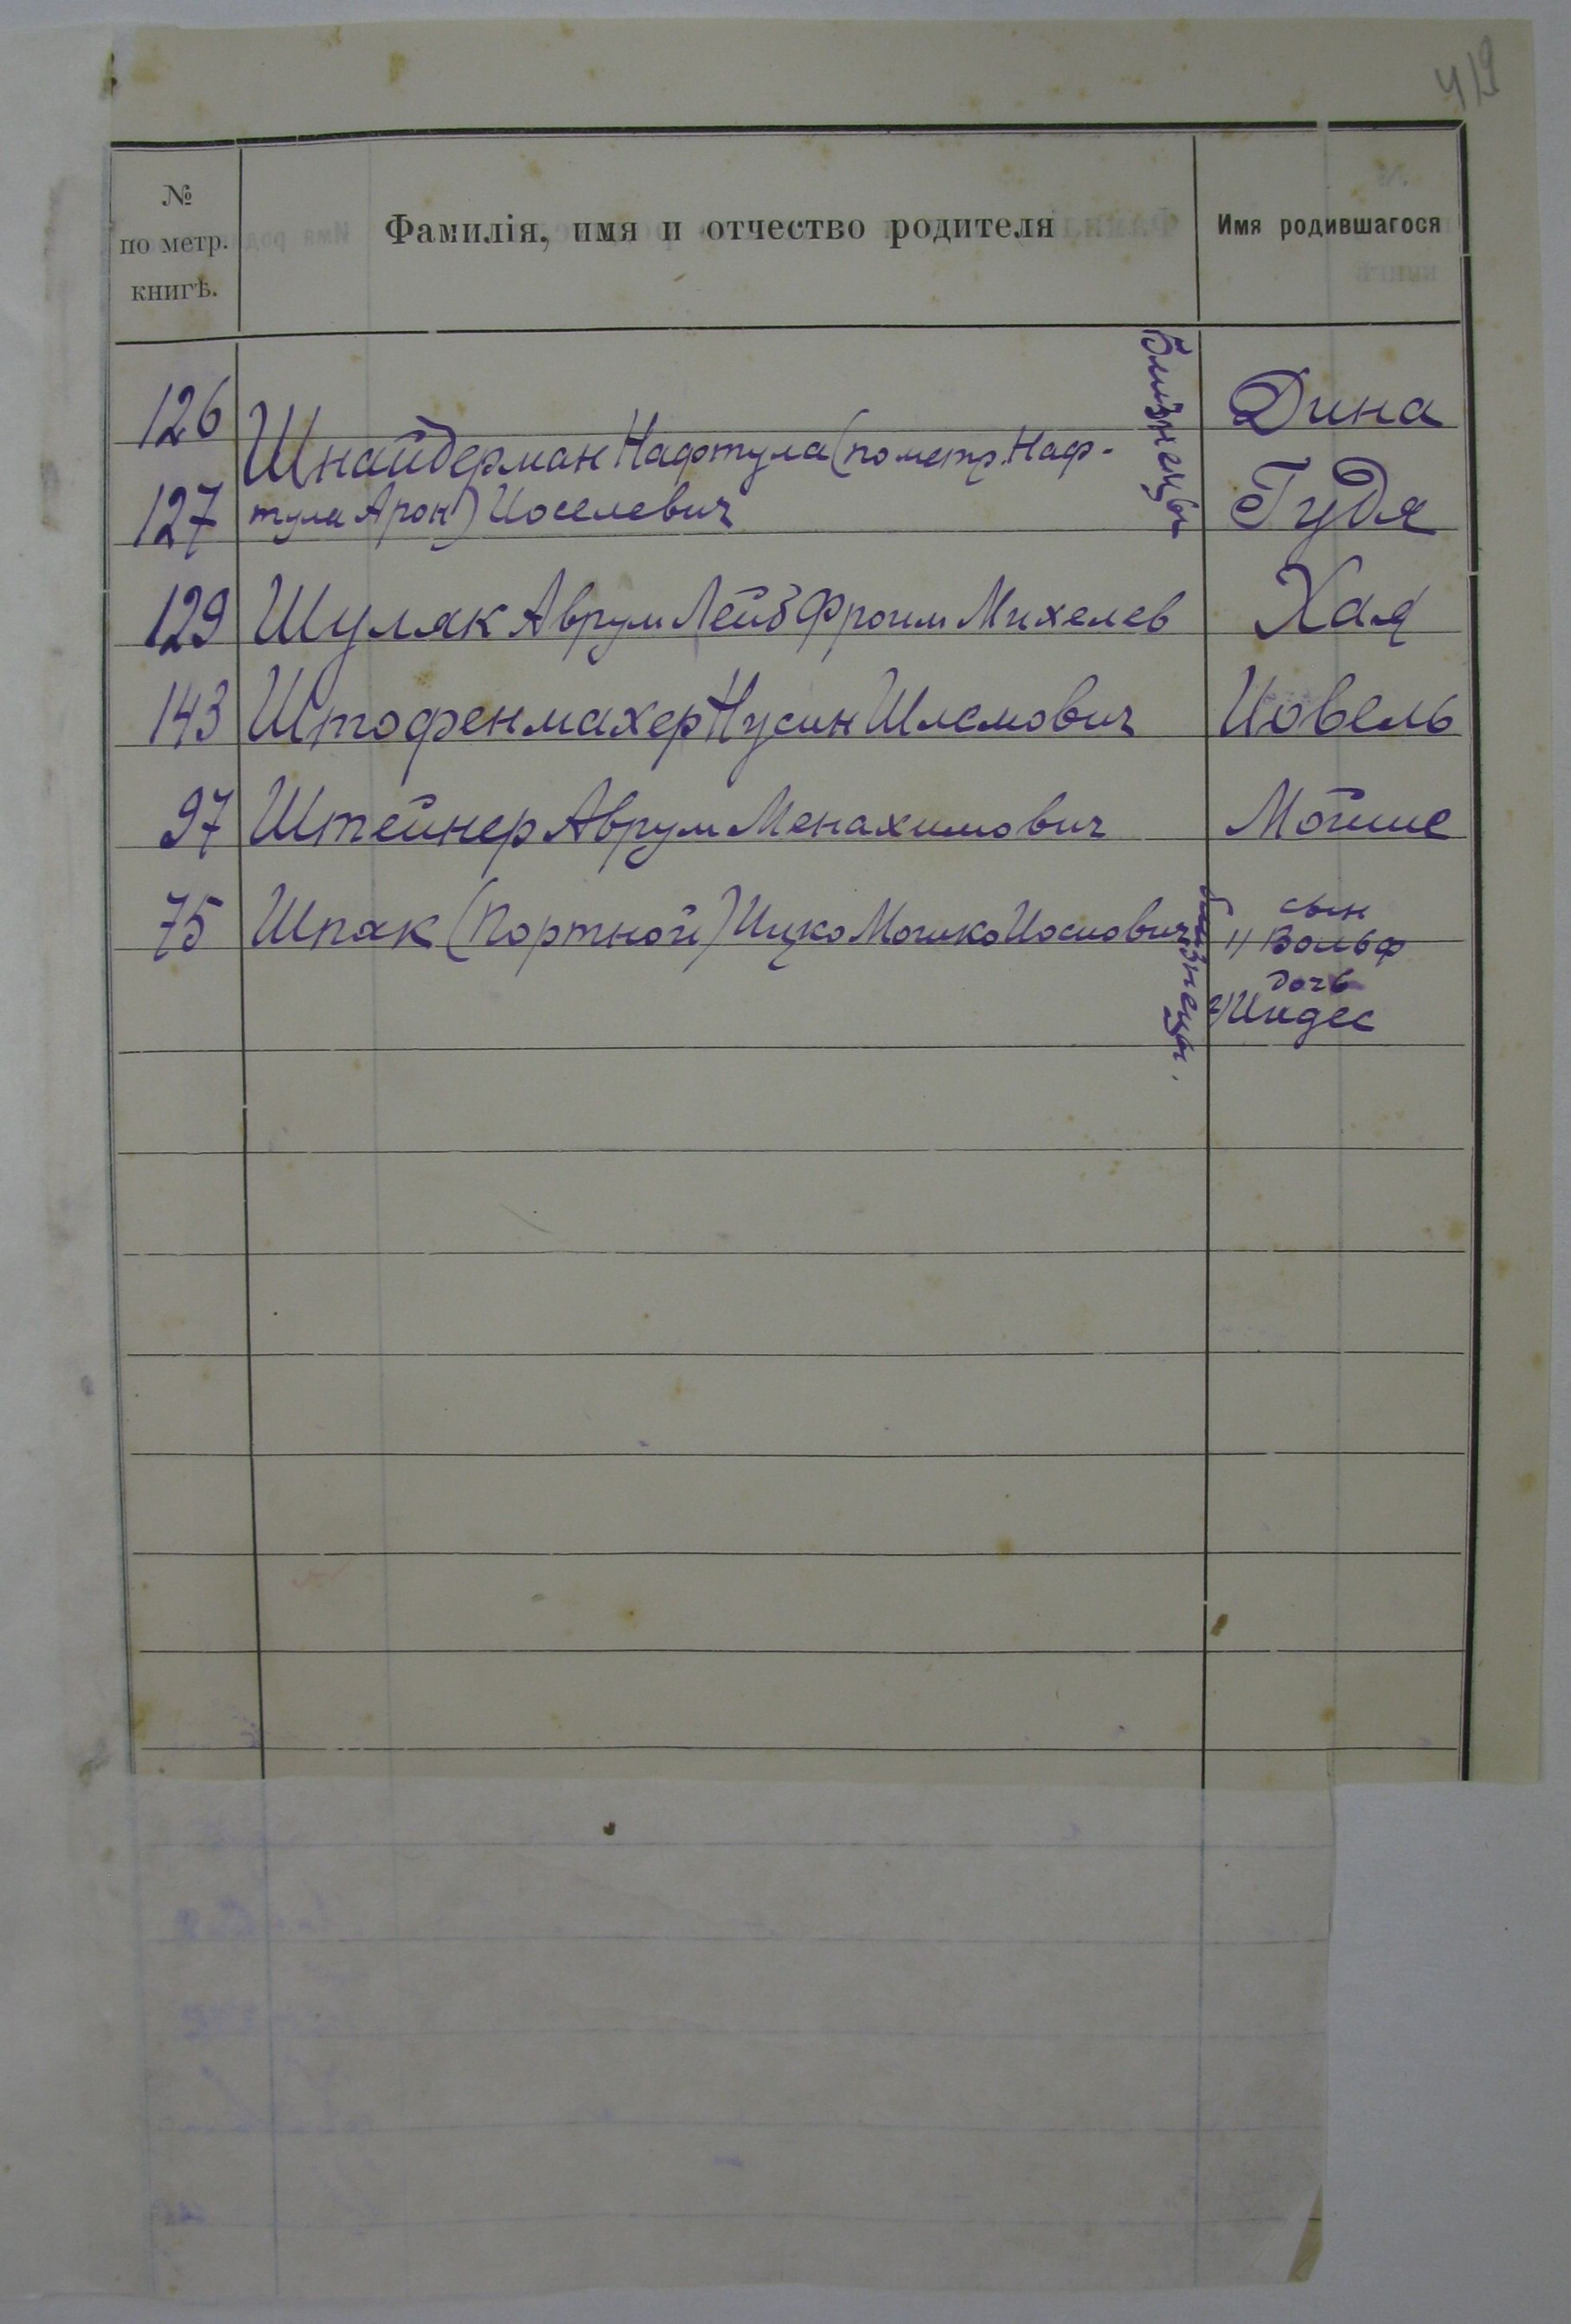 419
№ по метр. книгѣ.
Фамилія, имя и отчество родителя
Имя родившагося
126 Дина
Шнайдерман Нафтула (по метр. Наф-
127 тула Арон) Иоселевич Гудя
Близнецы
129 Шуляк Аврум Лейб Фроим Михелев Хая
143 Штофенмахер Нусин Шлемович Иовель
97 Штейнер Аврум Менахимович Мойше
75 Шпак (Портной) Ицко Мошко Иосиович
сын
1) Вольф
дочь
2) Индес
близнецы.